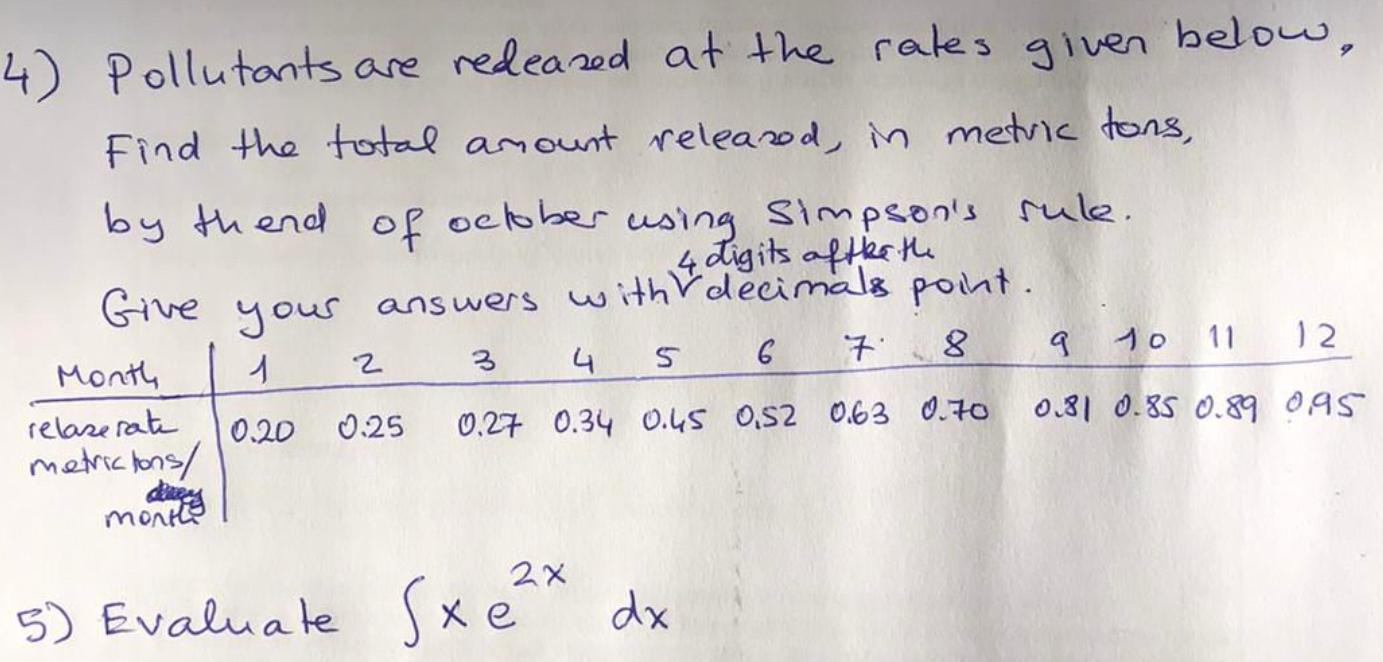 4) Pollutants are redeared at the rates given below,
Find the total amount releared, in metric tons,
by th end of october using Simpson's rule.
4 digits after the
Give your answers with decimals point.
Month 1 2 3 4 5 6 7 8 9 10 11 12
relase rate 0.20 0.25 0.27 0.34 0.45 0.52 0.63 0.70 0.81 0.85 0.89 0.95
metric tons/
month
5) Evaluate ∫ x e^2x dx